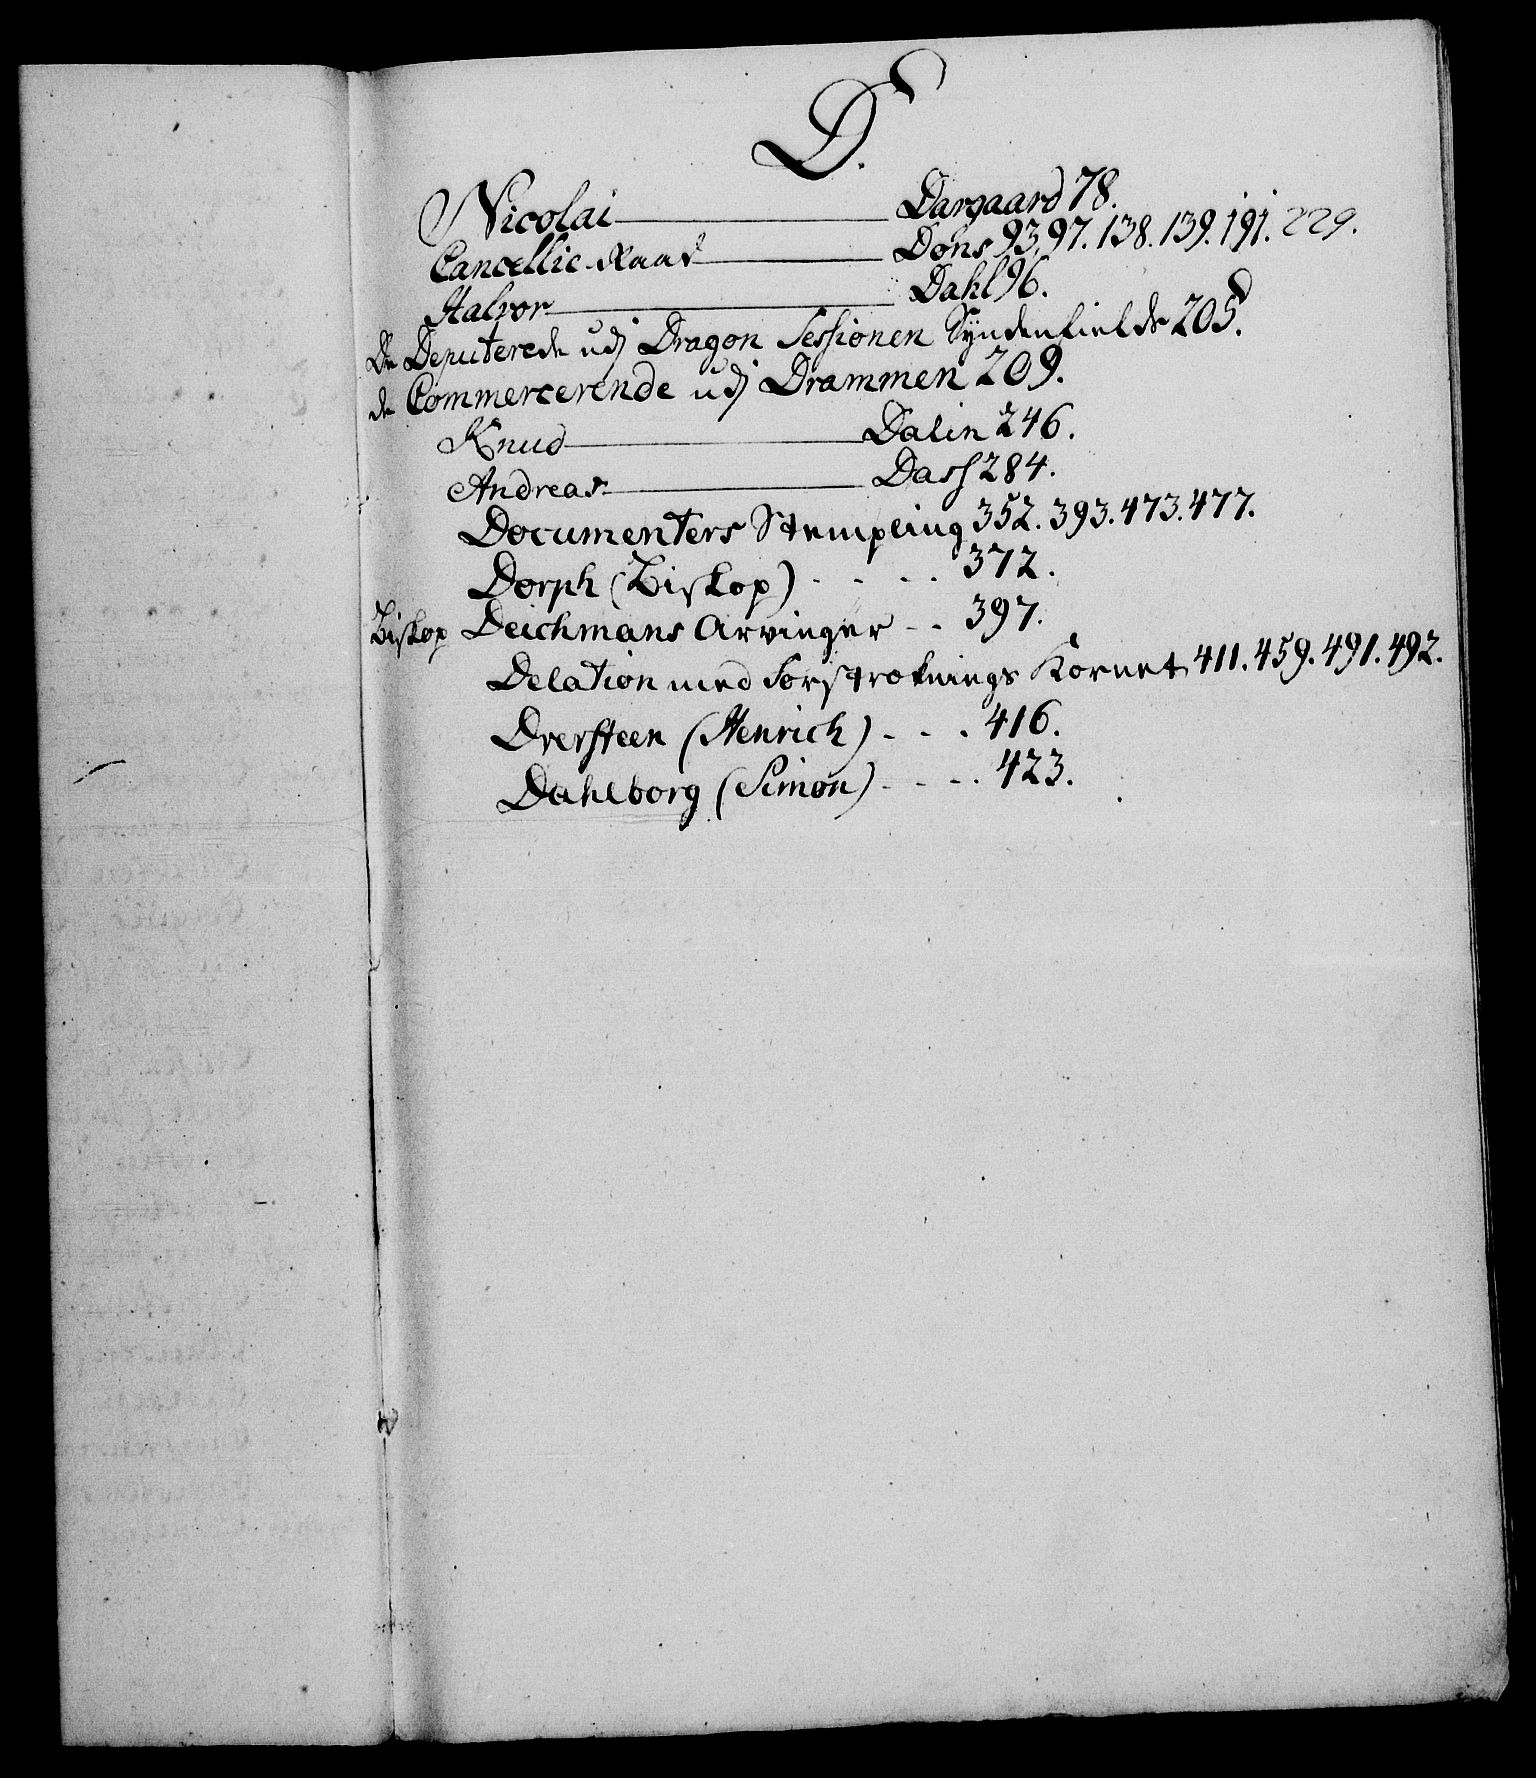 D.
Nicolai — Dargaard 78.
Cancellie-Raad — Dons 93. 97. 138. 139. 191. 229.
Halvor — Dahl 96.
De Deputerede udj Dragon Sessionen Syndenfields 205.
de Commercerende udj Drammen 209.
Knud — Dalin 246.
Andreas — Dass 284.
Documenters Stempling 352. 393. 473. 477.
Dorph (Biskop) - - - - 372.
Biskop Deichmans Arvinger - - 397.
Delation med Forstræknings Kornet 411. 459. 491. 492.
Dversteen (Henrich) - - - 416.
Dahlborg (Simon) - - - - 423.